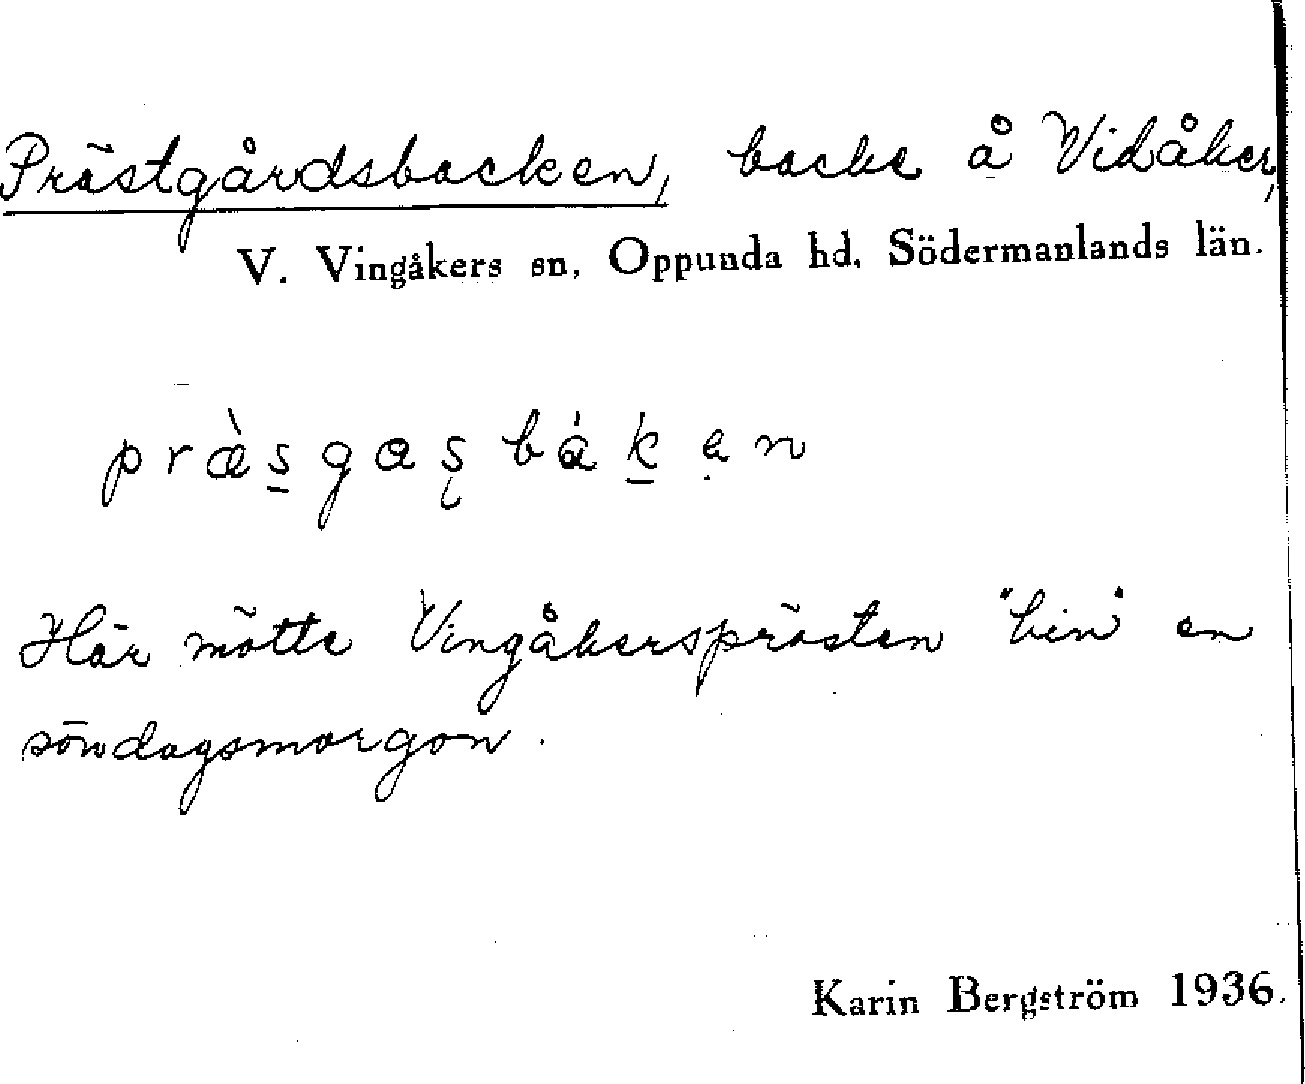 Prästgårdsbacken, backe å Vidåker,
V. Vingåkers sn, Oppunda hd, Södermanlands län.
præ̀s̲gaşbák̲ẹn
Här mötte Vingåkersprästen "hin" en
söndagsmorgon.
Karin Bergström 1936.